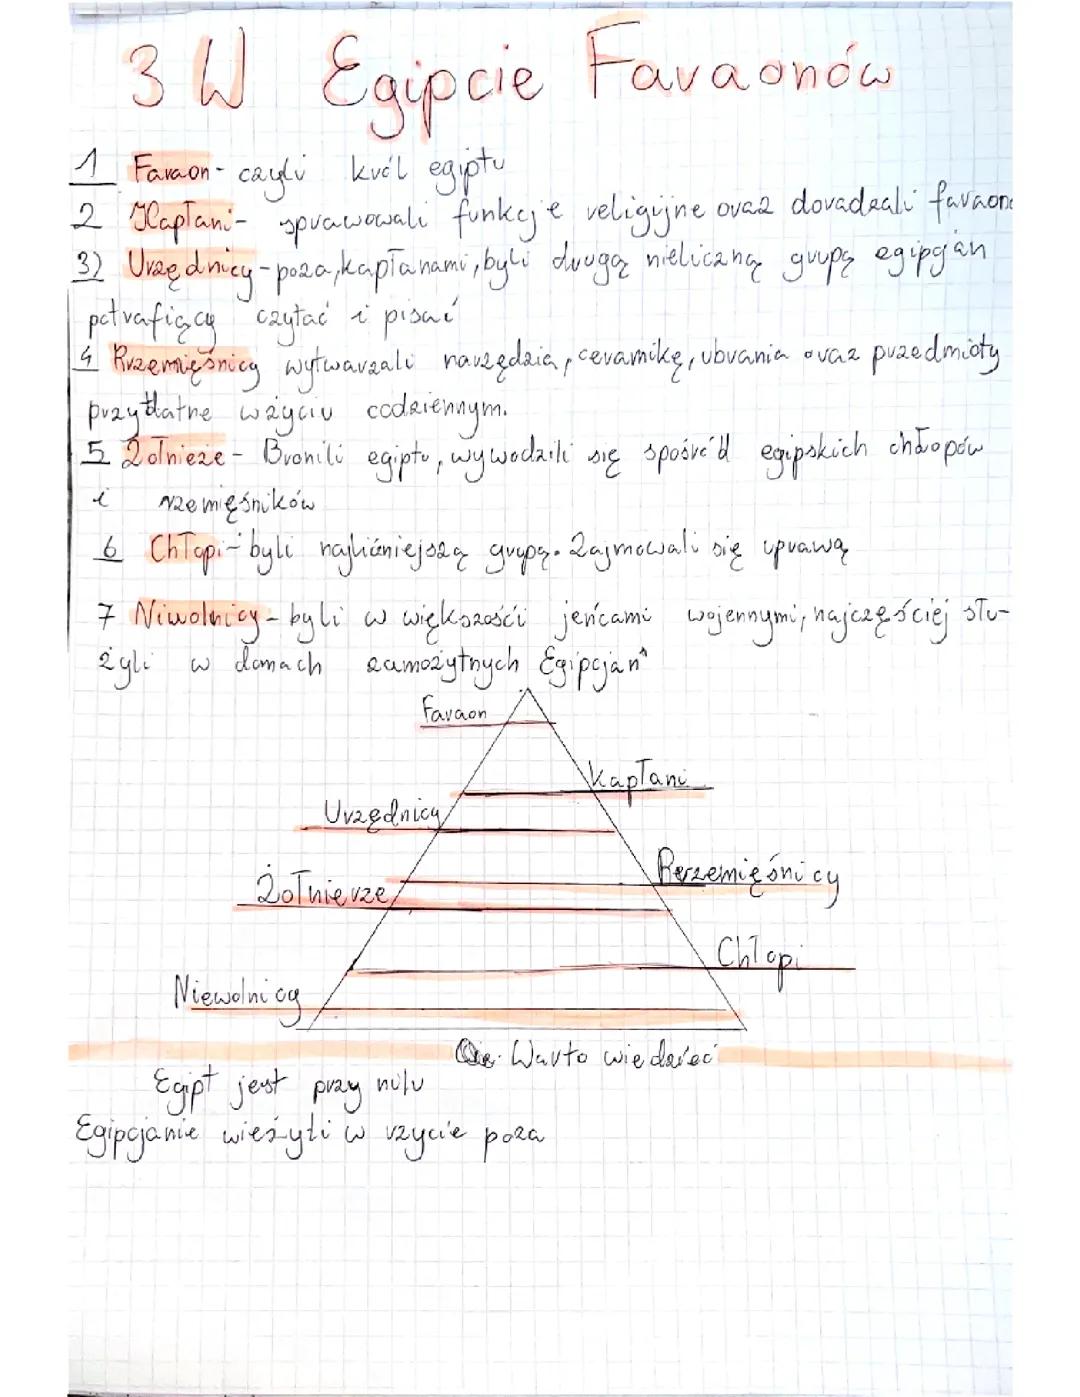 3 W Egipcie Faraonów
1 Faraon - czyli król egiptu
2 Kapłani - sprawowali funkcje religijne oraz doradzali faraono
3) Urzędnicy - poza, kapłanami, byli drugą nieliczną grupą egipcjan
potrafiący czytać i pisać
4 Rrzemięśnicy wytwarzali narzędzia, ceramikę, ubrania oraz przedmioty
przydatne w życiu codziennym.
5 Żołnieże - Bronili egiptu, wywodzili się spośród egipskich chłopów
i rzemięśników
6 Chłopi - byli najliczniejszą grupą. Zajmowali się uprawą
7 Niwolnicy - byli w większości jeńcami wojennymi, najczęściej słu-
żyli w domach zamożytnych Egipcjan
Faraon
Kapłani
Urzędnicy
Rerzemięśnicy
Żołnierze
Chłopi
Niewolnicy
Warto wiedzieć
Egipt jest przy nilu
Egipcjanie wieżyli w rzycie poza